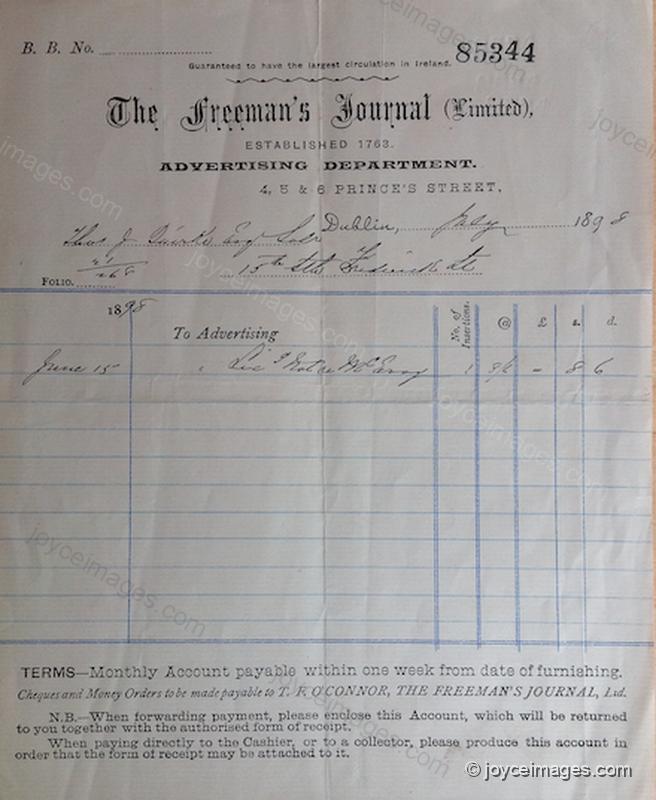 B. B. No.
Guaranteed to have the largest circulation in Ireland. 85344
The Freeman's Journal (Limited),
ESTABLISHED 1763.
ADVERTISING DEPARTMENT.
4, 5 & 6 PRINCE'S STREET,
Dublin, July 1898
Thos J Quirke Esq Solr
15 Sth Frederick St
FOLIO.
1898
To Advertising No. of Insertions. @ £ s. d.
June 15 " 1 8/6 - 8 6
TERMS—Monthly Account payable within one week from date of furnishing.
Cheques and Money Orders to be made payable to T. F. O'CONNOR, THE FREEMAN'S JOURNAL, Ltd.
N.B.—When forwarding payment, please enclose this Account, which will be returned
to you together with the authorised form of receipt.
When paying directly to the Cashier, or to a collector, please produce this account in
order that the form of receipt may be attached to it.
© joyceimages.com